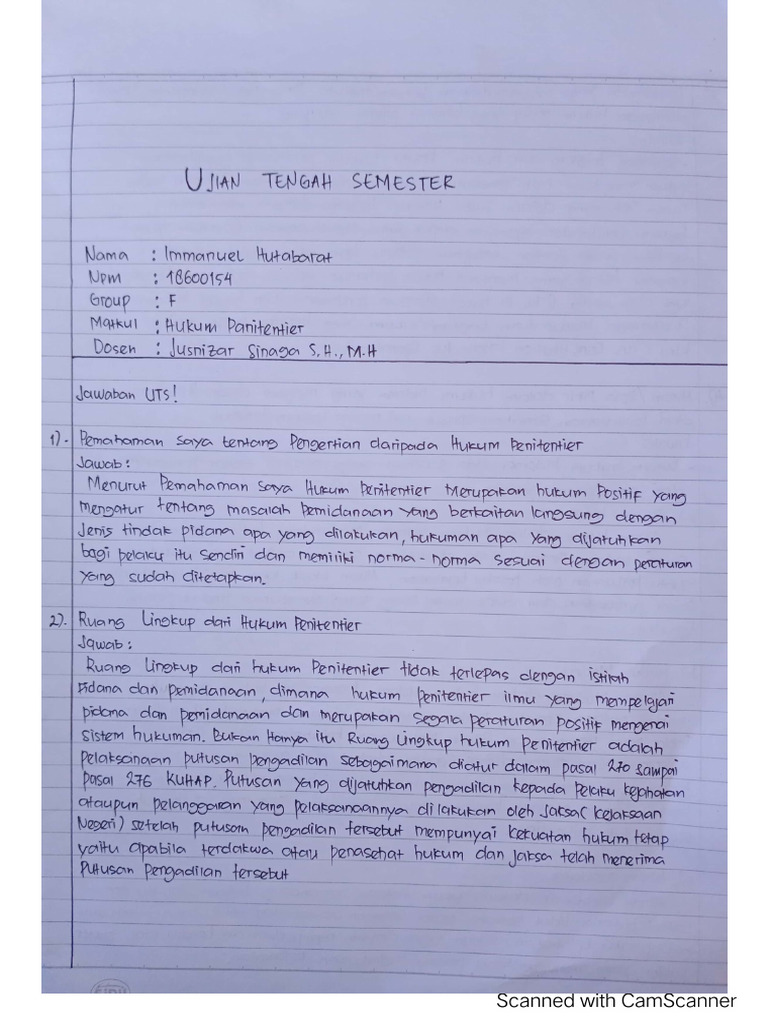 UJIAN TENGAH SEMESTER
Nama : Immanuel Hutabarat
Npm : 18600154
Group : F
Matkul : Hukum Panitentier
Dosen : Jusnizar Sinaga S.H., M.H
Jawaban UTS!
1). Pemahaman saya tentang Pengertian daripada Hukum Penitentier
Jawab :
Menurut Pemahaman saya Hukum Penitentier Merupakan hukum Positif yang
mengatur tentang masalah Pemidanaan yang berkaitan langsung dengan
Jenis tindak pidana apa yang dilakukan, hukuman apa yang dijatuhkan
bagi pelaku itu sendiri dan memiliki norma-norma sesuai dengan peraturan
yang sudah ditetapkan.
2). Ruang Lingkup dari Hukum Penitentier
Jawab :
Ruang Lingkup dari hukum Penitentier tidak terlepas dengan istilah
Pidana dan pemidanaan, dimana hukum penitentier ilmu yang mempelajari
pidana dan pemidanaan dan merupakan segala peraturan positif mengenai
sistem hukuman. Bukan Hanya itu Ruang Lingkup hukum Penitentier adalah
Pelaksanaan putusan pengadilan sebagaimana diatur dalam pasal 270 sampai
pasal 276 KUHAP. Putusan yang dijatuhkan pengadilan kepada pelaku kejahatan
ataupun pelanggaran yang pelaksanaannya dilakukan oleh Jaksa( kejaksaan
Negeri) setelah putusam pengadilan tersebut mempunyai kekuatan hukum tetap
yaitu apabila terdakwa atau penasehat hukum dan jaksa telah menerima
Putusan pengadilan tersebut
Scanned with CamScanner